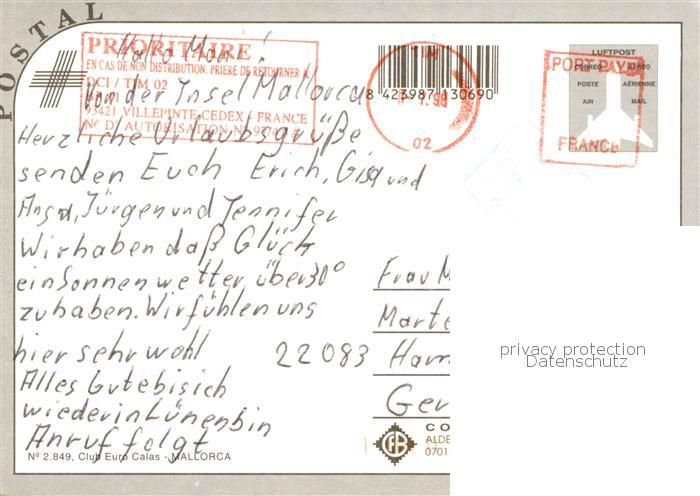 POSTAL
PRIORITAIRE
EN CAS DE NON DISTRIBUTION, PRIERE DE RETOURNER A
DCI / TIM 02
93421 VILLEPINTE CEDEX - FRANCE
Nº D'AUTORISATION N°
8 423987 130690
TIM
02
LUFTPOST
CORREO AEREO
POSTE AÉRIENNE
AIR MAIL
PORT PAYE
FRANCE
Hallo
Von der Insel Mallorca
Herzliche Urlaubsgrüße
senden Euch Erich, Gisa und
Jürgen und Jennifer
Wir haben daß Glück
ein Sonnenwetter über 30°
zu haben. Wir fühlen uns
hier sehr wohl
Alles Gute bis ich
wieder in Lünen bin
Anruf folgt
Frau M
Marte
22083 Ham
Ger
CO
ALDE
0701
Nº 2.849, Club Euro Calas - MALLORCA
privacy protection
Datenschutz